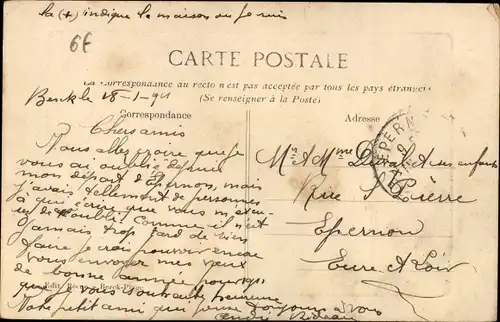 la (+) indique la maison ou je suis
6f
CARTE POSTALE
La Correspondance au recto n'est pas acceptée par tous les pays étrangers
(Se renseigner à la Poste)
Berck le 28-1-
Correspondance
Adresse
Chers amis
Vous allez croire que je
vous ai oublié depuis
mon départ d'Epernon, mais
j'avais tellement de personnes
à qui écrire que vous
Comme il n'est
jamais trop tard de bien
faire je crois pouvoir encore
vous envoyer mes vœux
de bonne année pour
que je vous souhaite heureuse
Edit. Berck-Plage
Votre petit ami que pense toujours à vous
André
EPERNON
M. & Mme Duval & Ses enfants
Rue St Pierre
Epernon
Eure & Loir